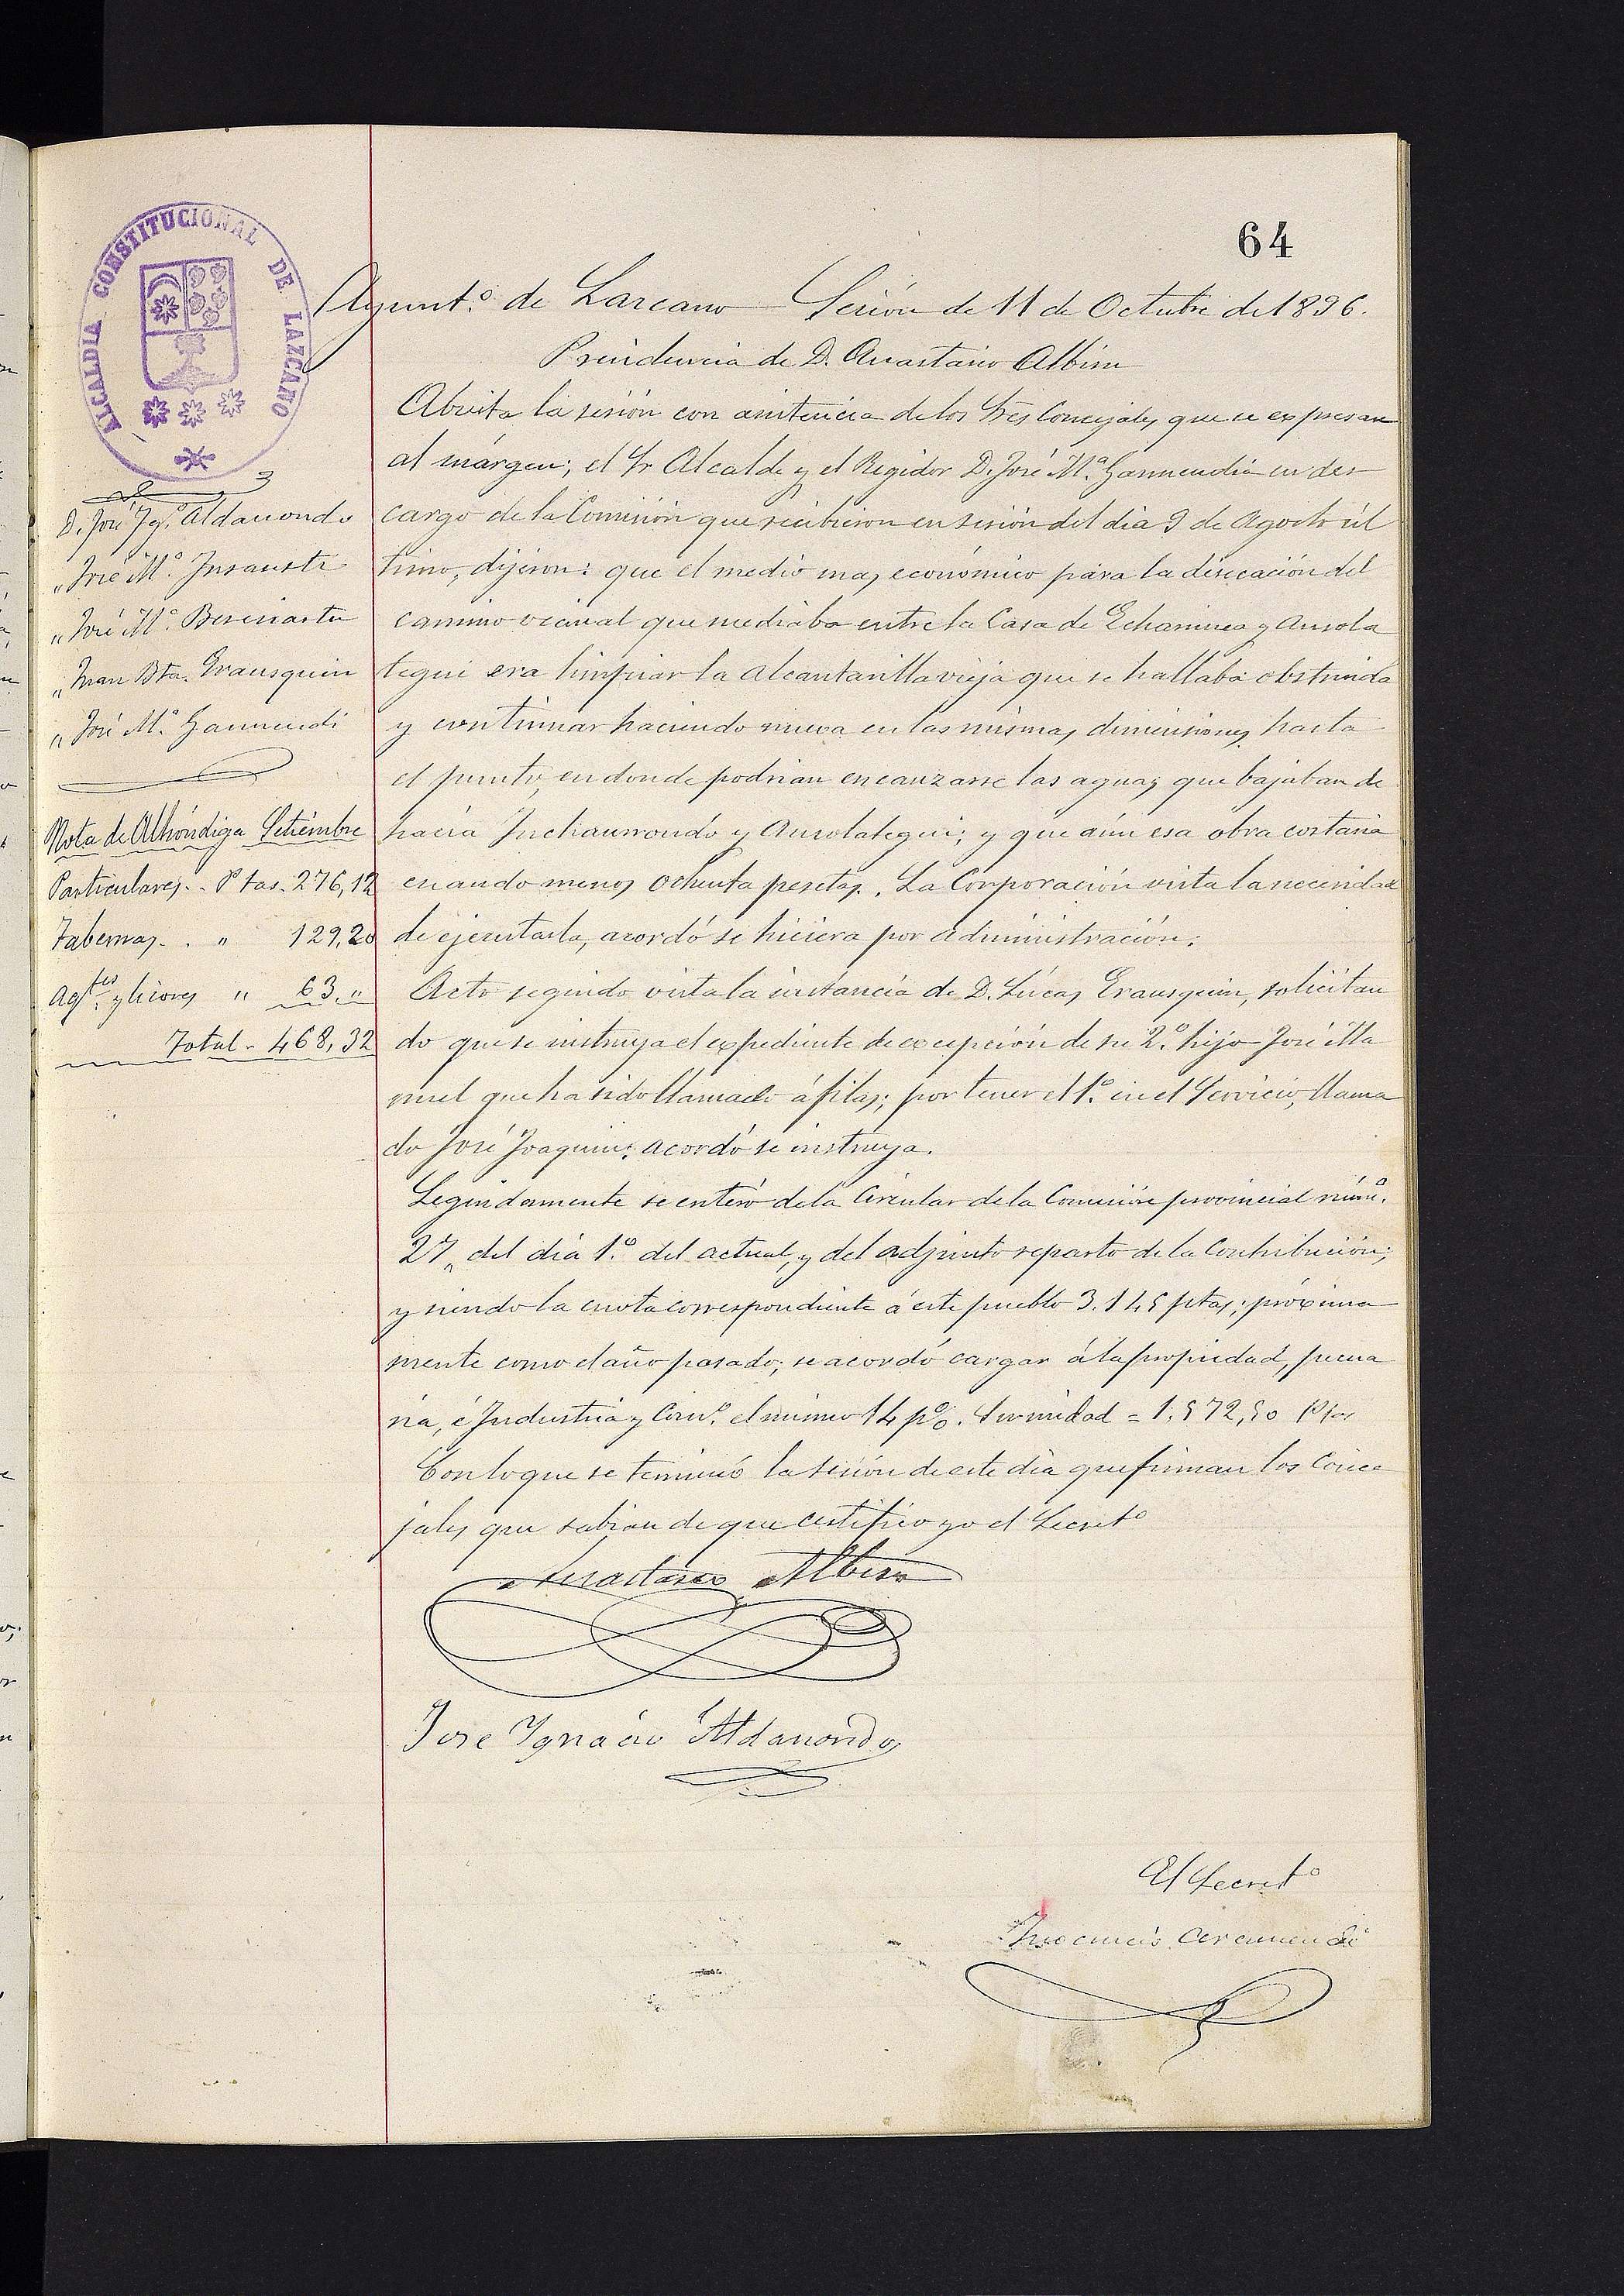 64
ALCALDIA CONSTITUCIONAL DE LAZCANO
Ayunt.º de Lazcano Sesión de 11 de Octubre de 1896.
Presidencia de D. Anastasio Albisu
D. José Ig.º Aldanondo
" José M.ª Insausti
" José M.ª Beresiartu
" Juan Bta. Erausquin
" José M.ª Garmendi
Nota de Alhóndiga Setiembre
Particulares. . Ptas. 276,12
Tabernas. . " 129,20
Ag.tes y licores " 63,"
Total - 468,32
Abierta la sesión con asistencia de los Sres Concejales que se expresan
al márgen; el Sr Alcalde y el Regidor D. José M.ª Garmendia en des
cargo de la Comisión que recibieron en sesión del dia 9 de Agosto úl
timo, dijeron: que el medio mas económico para la disecación del
camino vecinal que mediaba entre la Casa de Echaminea y Ansola
tegui era limpiar la alcantarilla vieja que se hallaba obstruida
y continuar haciendo nueva en las mismas dimensiones, hasta
el punto, en donde podrian encauzarse las aguas que bajaban de
hacia Inchaurrondo y Ansolategui; y que aún esa obra costaria
cuando menos ochenta pesetas. La Corporación vista la necesidad
de ejecutarla, acordó se hiciera por administración.
Acto seguido vista la instancia de D. Lúcas Erausquin, solicitan
do que se instruya el expediente de excepción de su 2.º hijo José Ma
nuel que ha sido llamado á filas; por tener el 1.º en el Servicio, llama
do José Joaquin: acordó se instruya.
Seguidamente se enteró de la Circular de la Comisión provincial núm.º
27, del dia 1.º del actual, y del adjunto reparto de la Contribución;
y siendo la cuota correspondiente á este pueblo 3.145 ptas; próxima
mente como el año pasado; se acordó cargar á la propiedad, pecua
ria, é Industria y Com.º el mismo 14 p%. Urnidad = 1.572,50 Ptas
Con lo que se terminó la sesión de este dia que firman los Conce
jales que sabian de que certifico yo el Secret.º
Anastasio Albisu
Jose Ygnacio Aldanondo
El Secret.º
Inocencio Aramendi